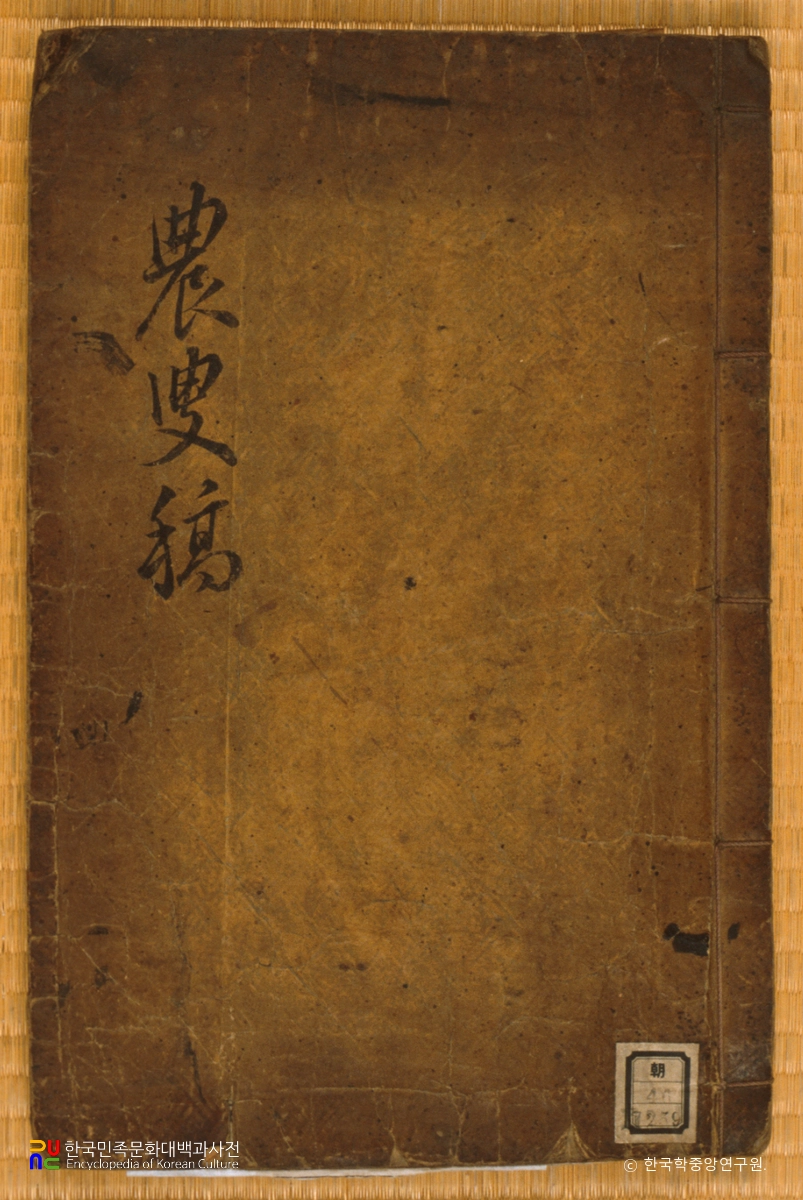 農叟稿
朝
한국민족문화대백과사전
Encyclopedia of Korean Culture
© 한국학중앙연구원.